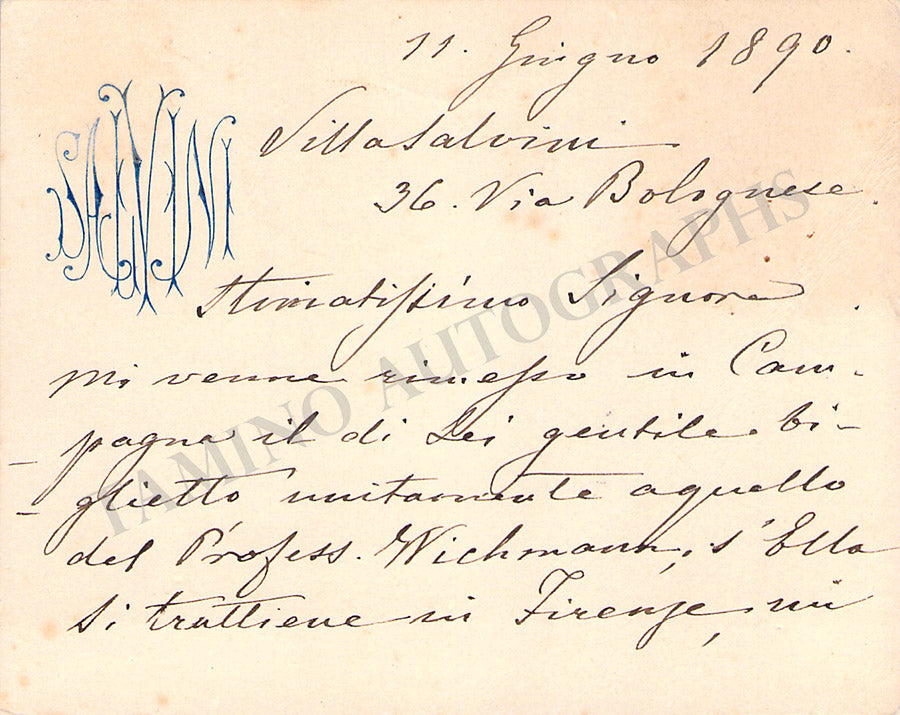 11. Giugno 1890.
SALVINI
Villa Salvini
36. Via Bolognese.
Stimatissimo Signore
Mi venne rimesso in Cam-
-pagna il di Lei gentile bi-
-glietto unitamente a quello
del Profess. Wichmann, s'Ella
si trattiene in Firenze, mi
TAMINO AUTOGRAPHS